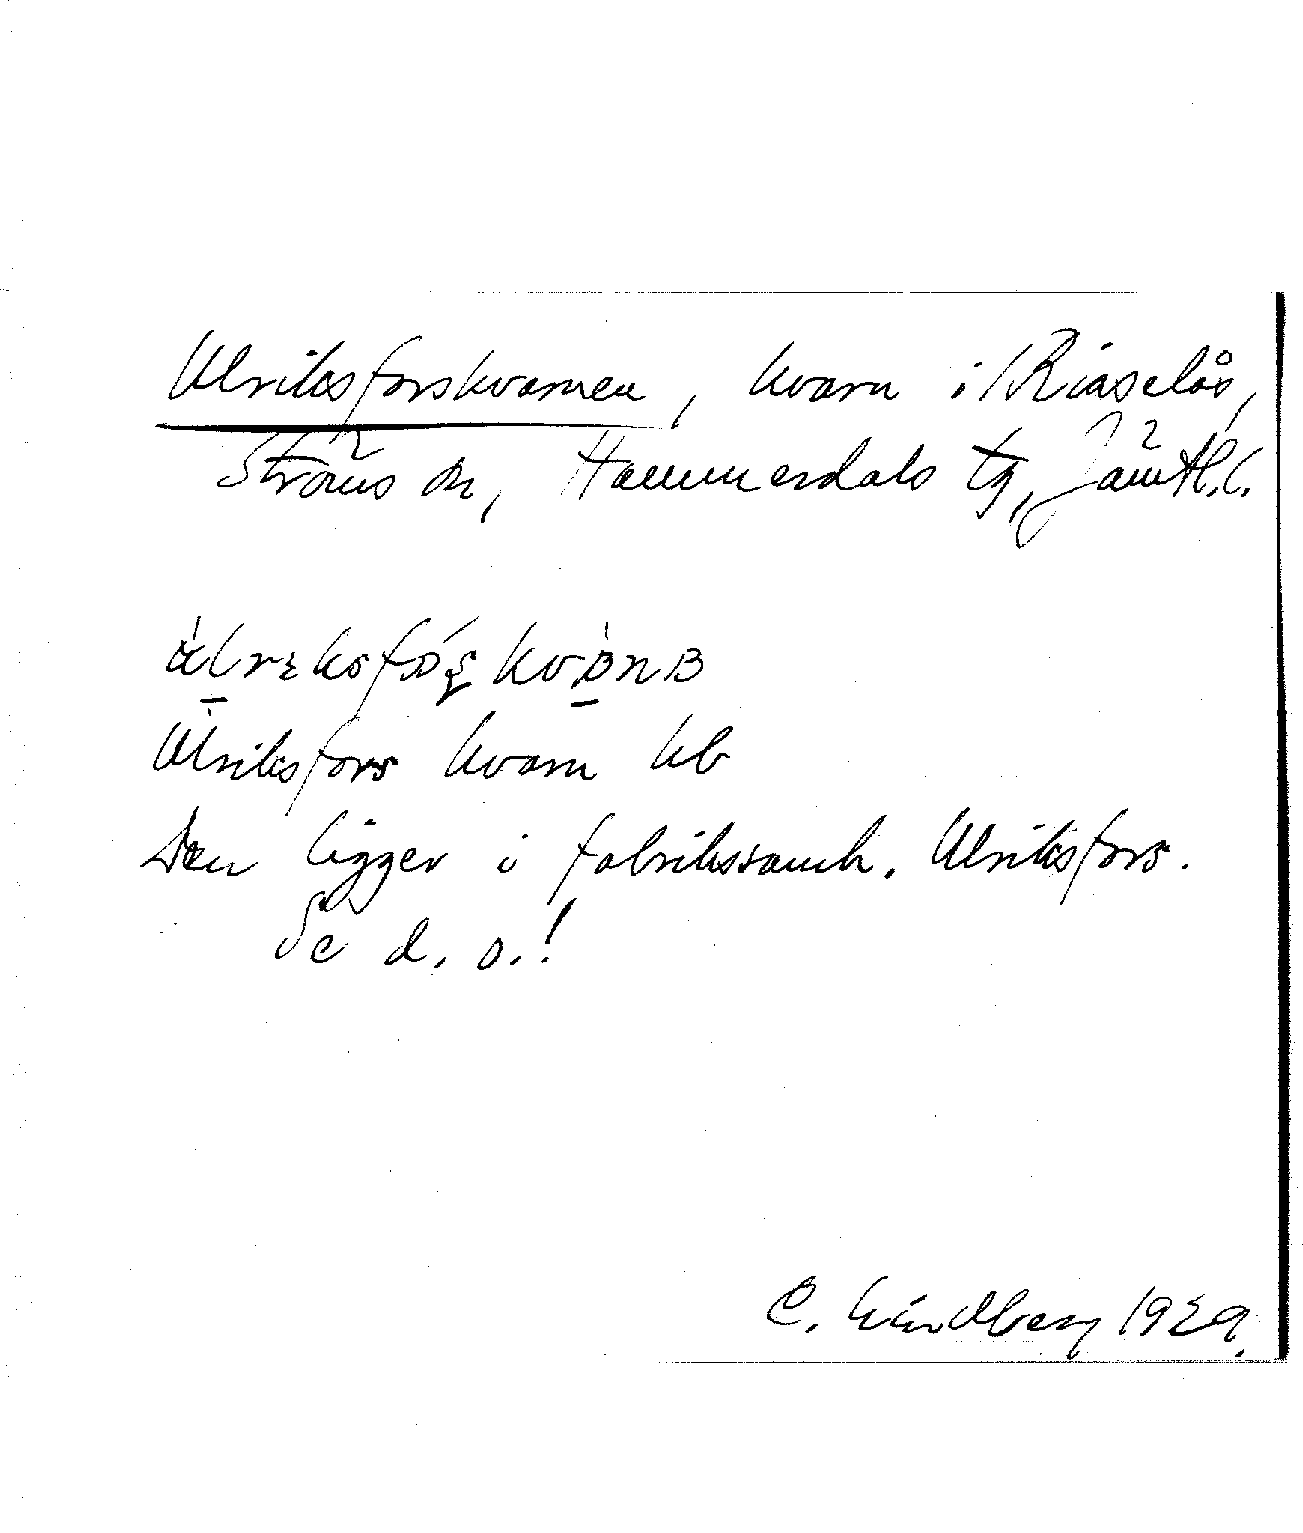 Ulriksforskvarnen, kvarn i Risselås,
Ströms sn, Hammerdals tg, Jämtl. l.
Ulriksfors kvarn kb
Den ligger i fabrikssamh. Ulriksfors.
Se d. o.!
C. Lindberg 1929.